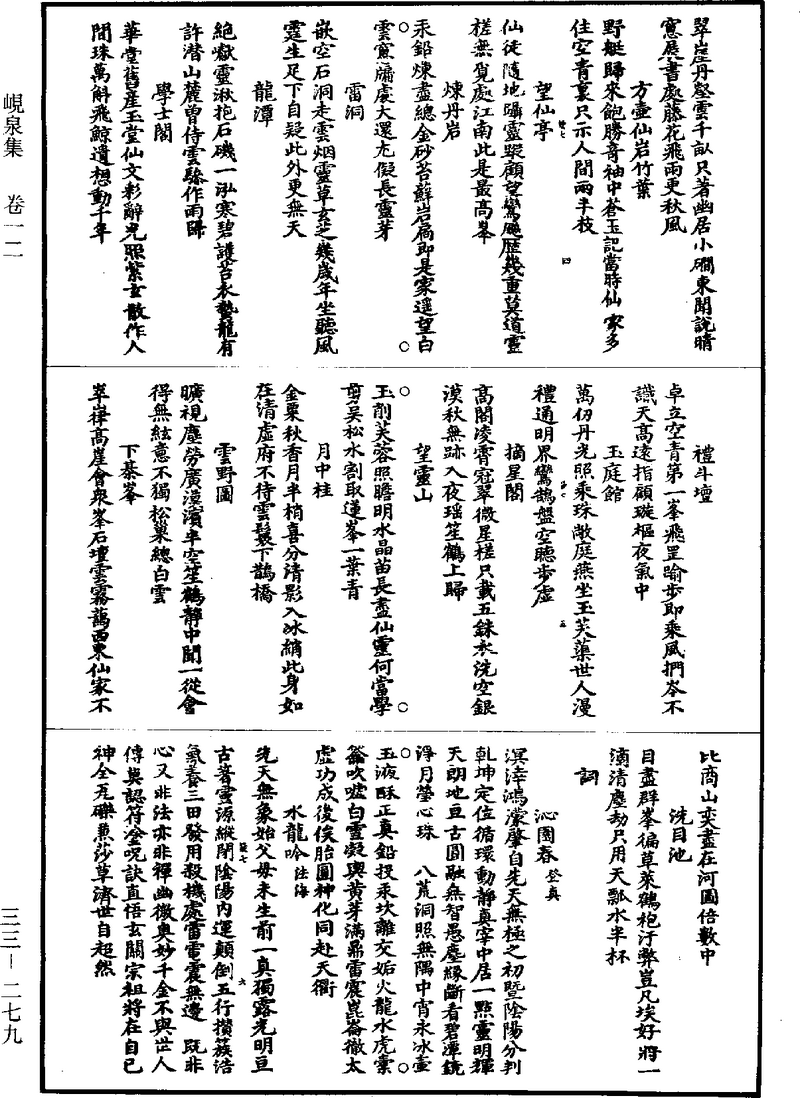 峴泉集　卷一二
三三－二七九
翠崖丹壑雲千畝只著幽居小磵東聞說晴
窻展書處藤花飛雨更秋風
方壺仙岩竹葉
野艇歸來飽勝竒袖中蒼玉記當時仙家多
住空青裏只示人間兩半枝
望仙亭
仙徒隨地躡靈蹤顧望鸞飈歷幾重莫道靈
槎無覓處江南此是最高峯
煉丹岩
汞鉛煉盡總金砂苔蘚岩扃即是家遥望白
雲窻牖處大還尤儗長靈芽
雷洞
嵌空石洞走雲烟靈草玄芝幾歲年坐聽風
霆生足下自疑此外更無天
龍潭
絶嶽靈湫抱石磯一泓寒碧護苔衣蟄龍有
許潜山麓曽侍雲驂作雨歸
學士閣
華堂舊産玉堂仙文彩辭光照紫玄散作人
間珠萬斛飛鯨遺想動千年
禮斗壇
卓立空青第一峯飛罡踰步即乘風捫岑不
識天高遠指顧璇樞夜氣中
玉庭館
萬仞丹光照乘珠敞庭燕坐玉芙蕖世人漫
禮通明界鸞鶴盤空聽步虛
摘星閣
髙閣凌霄冠翠微星槎只載五銖衣洗空銀
漢秋無跡入夜瑶笙鶴上歸
望靈山
玉削芙蓉照瞻明水晶苗長盡仙靈何當學
剪吴松水割取蓮峯一葉青
月中桂
金粟秋香月半梢喜分清影入冰綃此身如
在清虛府不待雲鬟下鵲橋
雲野圖
曠視塵勞廣漠濱半空笙鶴靜中聞一從會
得無絃意不獨松巢總白雲
下棊峯
崒嵂高崖會衆峯石壇雲霧藹西東仙家不
比商山奕盡在河圖倍數中
洗目池
目盡群峯徧草萊鶴袍汙弊豈凡埃好將一
滴清塵劫只用天瓢水半杯
詞
沁園春
溟涬鴻濛肇自先天無極之初暨陰陽分判
乾坤定位循環動静真宰中居一點靈明輝
天朗地亘古圓融無智愚塵緣斷看碧潭鏡
淨月瑩心珠　八荒洞照無隅中宵永冰壺
玉液酥正真鉛投汞坎離交姤火龍水虎橐
籥吹噓白雪凝輿黄芽滿鼎雷震崑崙徹太
虛功成後俟胎圓神化同赴天衢
水龍吟
先天無象始父毋未生前一真獨露光明亘
古著靈源縱閉陰陽内運顛倒五行攢簇浩
氣養三田發用殺機處雷電震無邊　既非
心又非法亦非禪幽微奥妙千金不與世人
傳莫認符塗呪訣直悟玄關宗祖將在自己
神全瓦礫蕉莎草濟世自超然